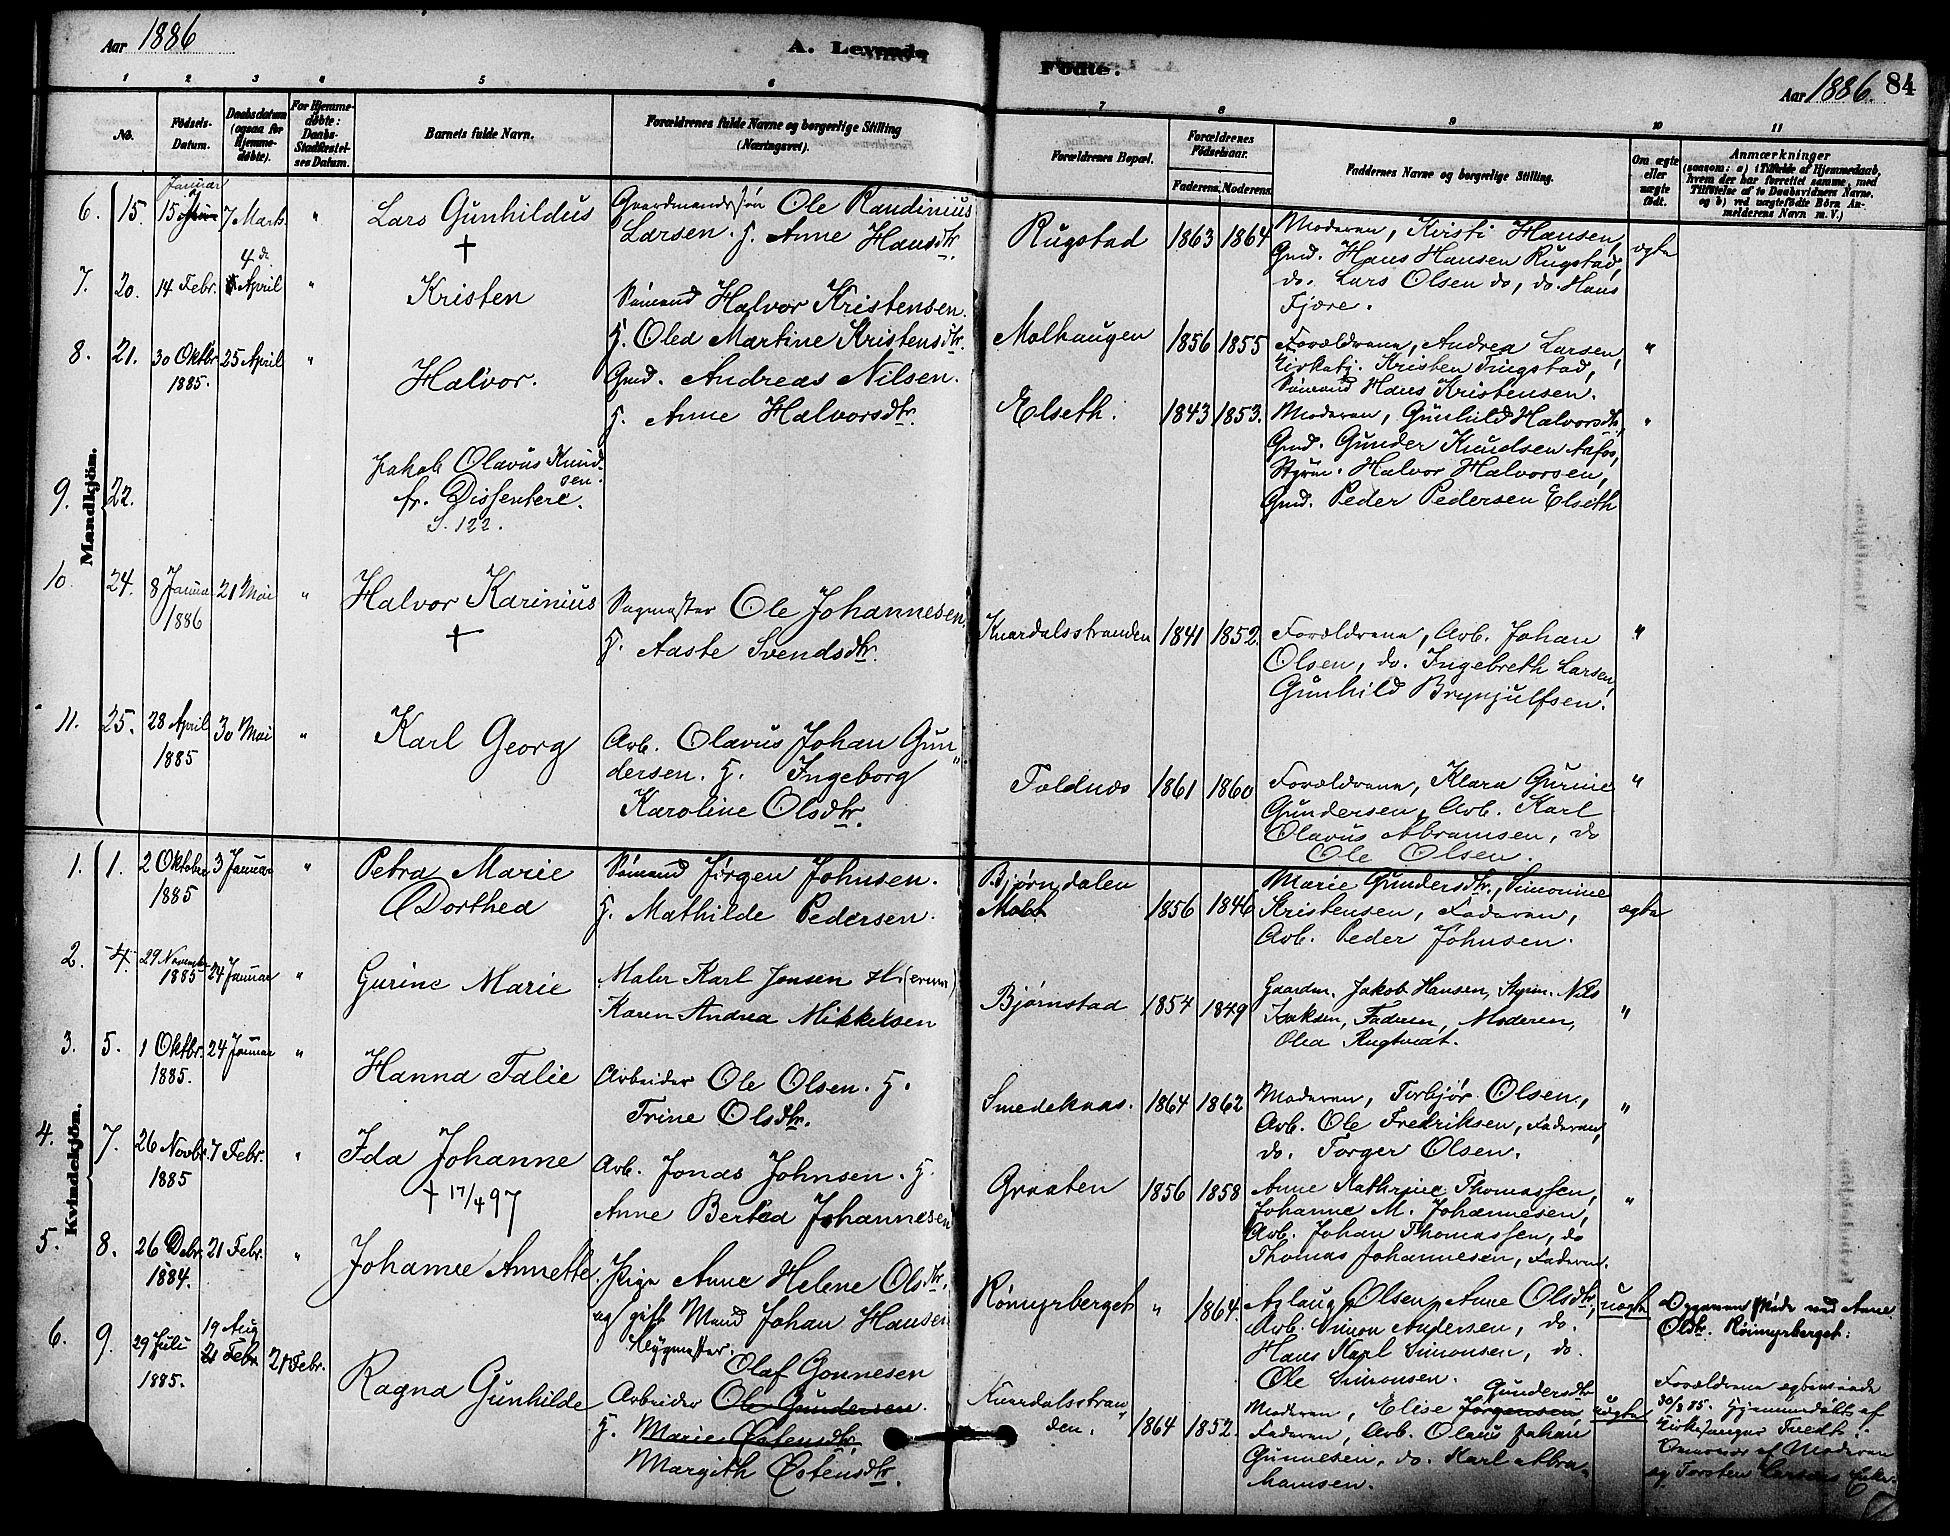 Aar 1886
A. Levende
Fødte.
Aar 1886. 84
1 2 3 4 5 6 7 8 9 10 11
No.
Fødsels-
Datum.
Daabsdatum
(ogsaa for
Hjemme-
døbte).
For Hjemme-
døbte:
Daabs-
Stadfæstel-
ses Datum.
Barnets fulde Navn.
Forældrenes fulde Navne og borgerlige Stilling
(Næringsvei).
Forældrenes Bopæl.
Forældrenes
Fødselsaar.
Faderens. Moderens.
Faddernes Navne og borgerlige Stilling.
Om ægte
eller
uægte
født.
Anmærkninger
(saasom: a) i Tilfælde af Hjemmedaab,
hvem der har forrettet samme, med
Tilføielse af to Daabsvidners Navne,
og b) ved uægtefødte Børn An-
melderens Navn m. V.)
Mandkjön.
6. 15. 15 Januar 7 Marts "
Lars Gunhildus
+
Gaardmandssøn Ole Randinius
Larsen. H. Anne Hansdtr.
Rugstad 1863 1864
Moderen, Kirsti Hansen,
Gmd. Hans Hansen Rugstad,
do. Lars Olsen do, do. Hans
Fjære.
ægte
7. 20. 14 Febr. 4de April "
Kristen
Sömand Halvor Kristensen.
H. Olea Martine Kristensdtr.
Molhaugen 1856 1855
Forældrene, Andrea Larsen,
Kirketj. Kristen Tingstad,
Sömand Hans Kristensen.
"
8. 21. 30 Oktbr. 25 April "
1885.
Halvor.
Gmd. Andreas Nilsen.
H. Anne Halvorsdtr.
Elseth. 1843 1853.
Moderen, Gunhild Halvorsdtr,
Gmd. Gunder Knudsen Aafos,
Styrm. Halvor Halvorsen,
Gmd. Peder Pedersen Elseth
"
9. 22.
Jakob Olavus Knud-
sen.
fr. Dissentere.
S. 122.
10. 24. 8 Januar 21 Mai "
1886
Halvor Karinius
+
Sagmester Ole Johannesen.
H. Aaste Svendsdtr.
Knardalsstranden 1841 1852.
Forældrene, Arb. Johan
Olsen, do. Ingebreth Larsen,
Gunhild Brynjulfsen.
"
11. 25. 28 April 30 Mai "
1885
Karl Georg
Arb. Olavus Johan Gun"
dersen. H. Ingeborg
Karoline Olsdtr.
Toldnæs 1861 1860
Forældrene, Klara Gurine
Gundersen, Arb. Karl
Olavus Abramsen, do
Ole Olsen.
"
Kvindekjön.
1. 1. 2 Oktober 3 Januar "
1885
Petra Marie
Dorthea
Sömand Jørgen Johnsen.
H. Mathilde Pedersen.
Bjørndalen
1856 1846
Marie Gundersdtr., Simonine
Kristensen, Faderen,
Arb. Peder Johnsen.
ægte
2. 4. 29 November 24 Januar "
1885
Gurine Marie
Maler Karl Jensen H.
Karen Andrea Mikkelsen
Bjørnstad 1854 1849
Gaardm. Jakob Hansen, Styrm. Nils
Isaksen, Faderen, Moderen,
Olea Rugtvedt.
"
3. 5. 1 Oktbr. 24 Januar "
1885.
Hanna Talie
Arbeider Ole Olsen. H.
Trine Olsdtr.
Smedeknas. 1864 1862
Moderen, Torbjør Olsen,
Arb. Ole Fredriksen, Faderen,
do. Torger Olsen.
"
4. 7. 26 Novbr. 7 Febr. "
1885
Ida Johanne
+ 17/4 97
Arb. Jonas Johnsen. H.
Anne Bertea Johannesen
Graaten 1856 1858
Anne Kathrine Thomassen,
Johanne M. Johannesen,
Arb. Johan Thomassen, do
Thomas Johannesen, Faderen.
"
5. 8. 26 Debr. 21 Febr. "
1884.
Johanne Annette
Pige Anne Helene Olsdtr.
og gift Mand Johan Hansen
Rømyrberget " 1864.
Aslaug Olsen, Anne Olsdtr,
Arb. Simon Andersen, do.
Hans Karl Simonsen, do.
Ole Simonsen.
uægte
Opgaven skede ved Anne
Olsdtr. Røimyrberget.
6. 9. 29 Juli 19 Aug 21 Febr.
1885. 21 Febr.
Ragna Gunhilde
Olaf Gonnesen
Arbeider Ole Gundersen.
H. Marie Östensdtr.
Margith Östensdtr.
Knardalsstran"
den. 1864 1852.
Gundersdtr
Moderen, Elise Jørgensen
Faderen, Arb. Olaus Johan
Gunnesen, do. Karl Abra-
hamsen.
uægte
Forældrene ægteviede
30/8 85. Hjemmedøbt af
Kirkesanger Tvedt.
Moderen
og Torsten Larsens Enke.